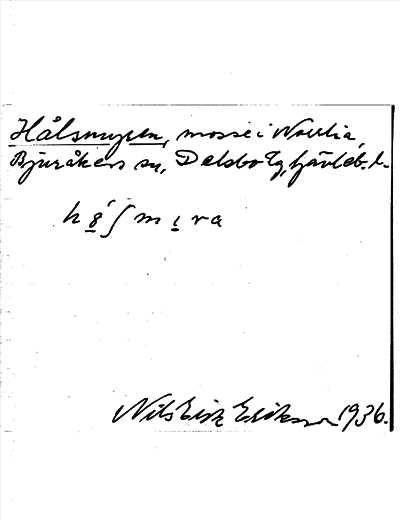 Hålsmyren, mosse i Norrlia,
Bjuråkers sn, Delsbo tg, Gävleb. l.
h 8́ ʃ m ı r a
Nils Erik Eriksson 1936.